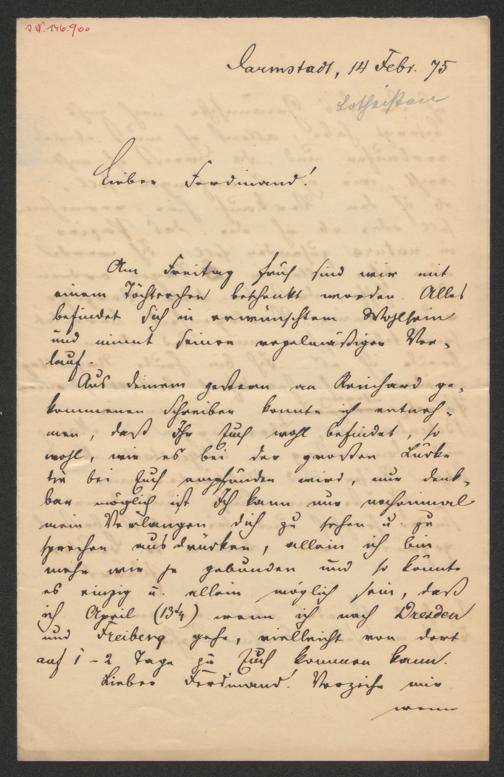 I.N. 146.900
Darmstadt, 14 Febr. 75
Lotheißen
Lieber Ferdinand!
Am Freitag früh sind wir mit
einem Töchterchen beschenkt worden. Alles
befindet sich in erwünschtem Wohlsein
und nimmt seinen regelmäßigen Ver-
lauf.
Aus deinem gestern an Reinhard ge-
kommenen Schreiben konnte ich entneh-
men, daß Ihr Euch wohl befindet, so
wohl, wie es bei der großen Lücke
die bei Euch empfunden wird, nur denk-
bar möglich ist. Ich kann nur nochmal
mein Verlangen dich zu sehen u zu
sprechen ausdrücken, allein ich bin
mehr wie je gebunden und so könnte
es einzig u. allein möglich sein, daß
ich April (13/4) wenn ich nach Dresden
und Freiberg gehe, vielleicht von dort
auf 1-2 Tage zu Euch kommen kann.
Lieber Ferdinand! Verzeihe mir
wenn